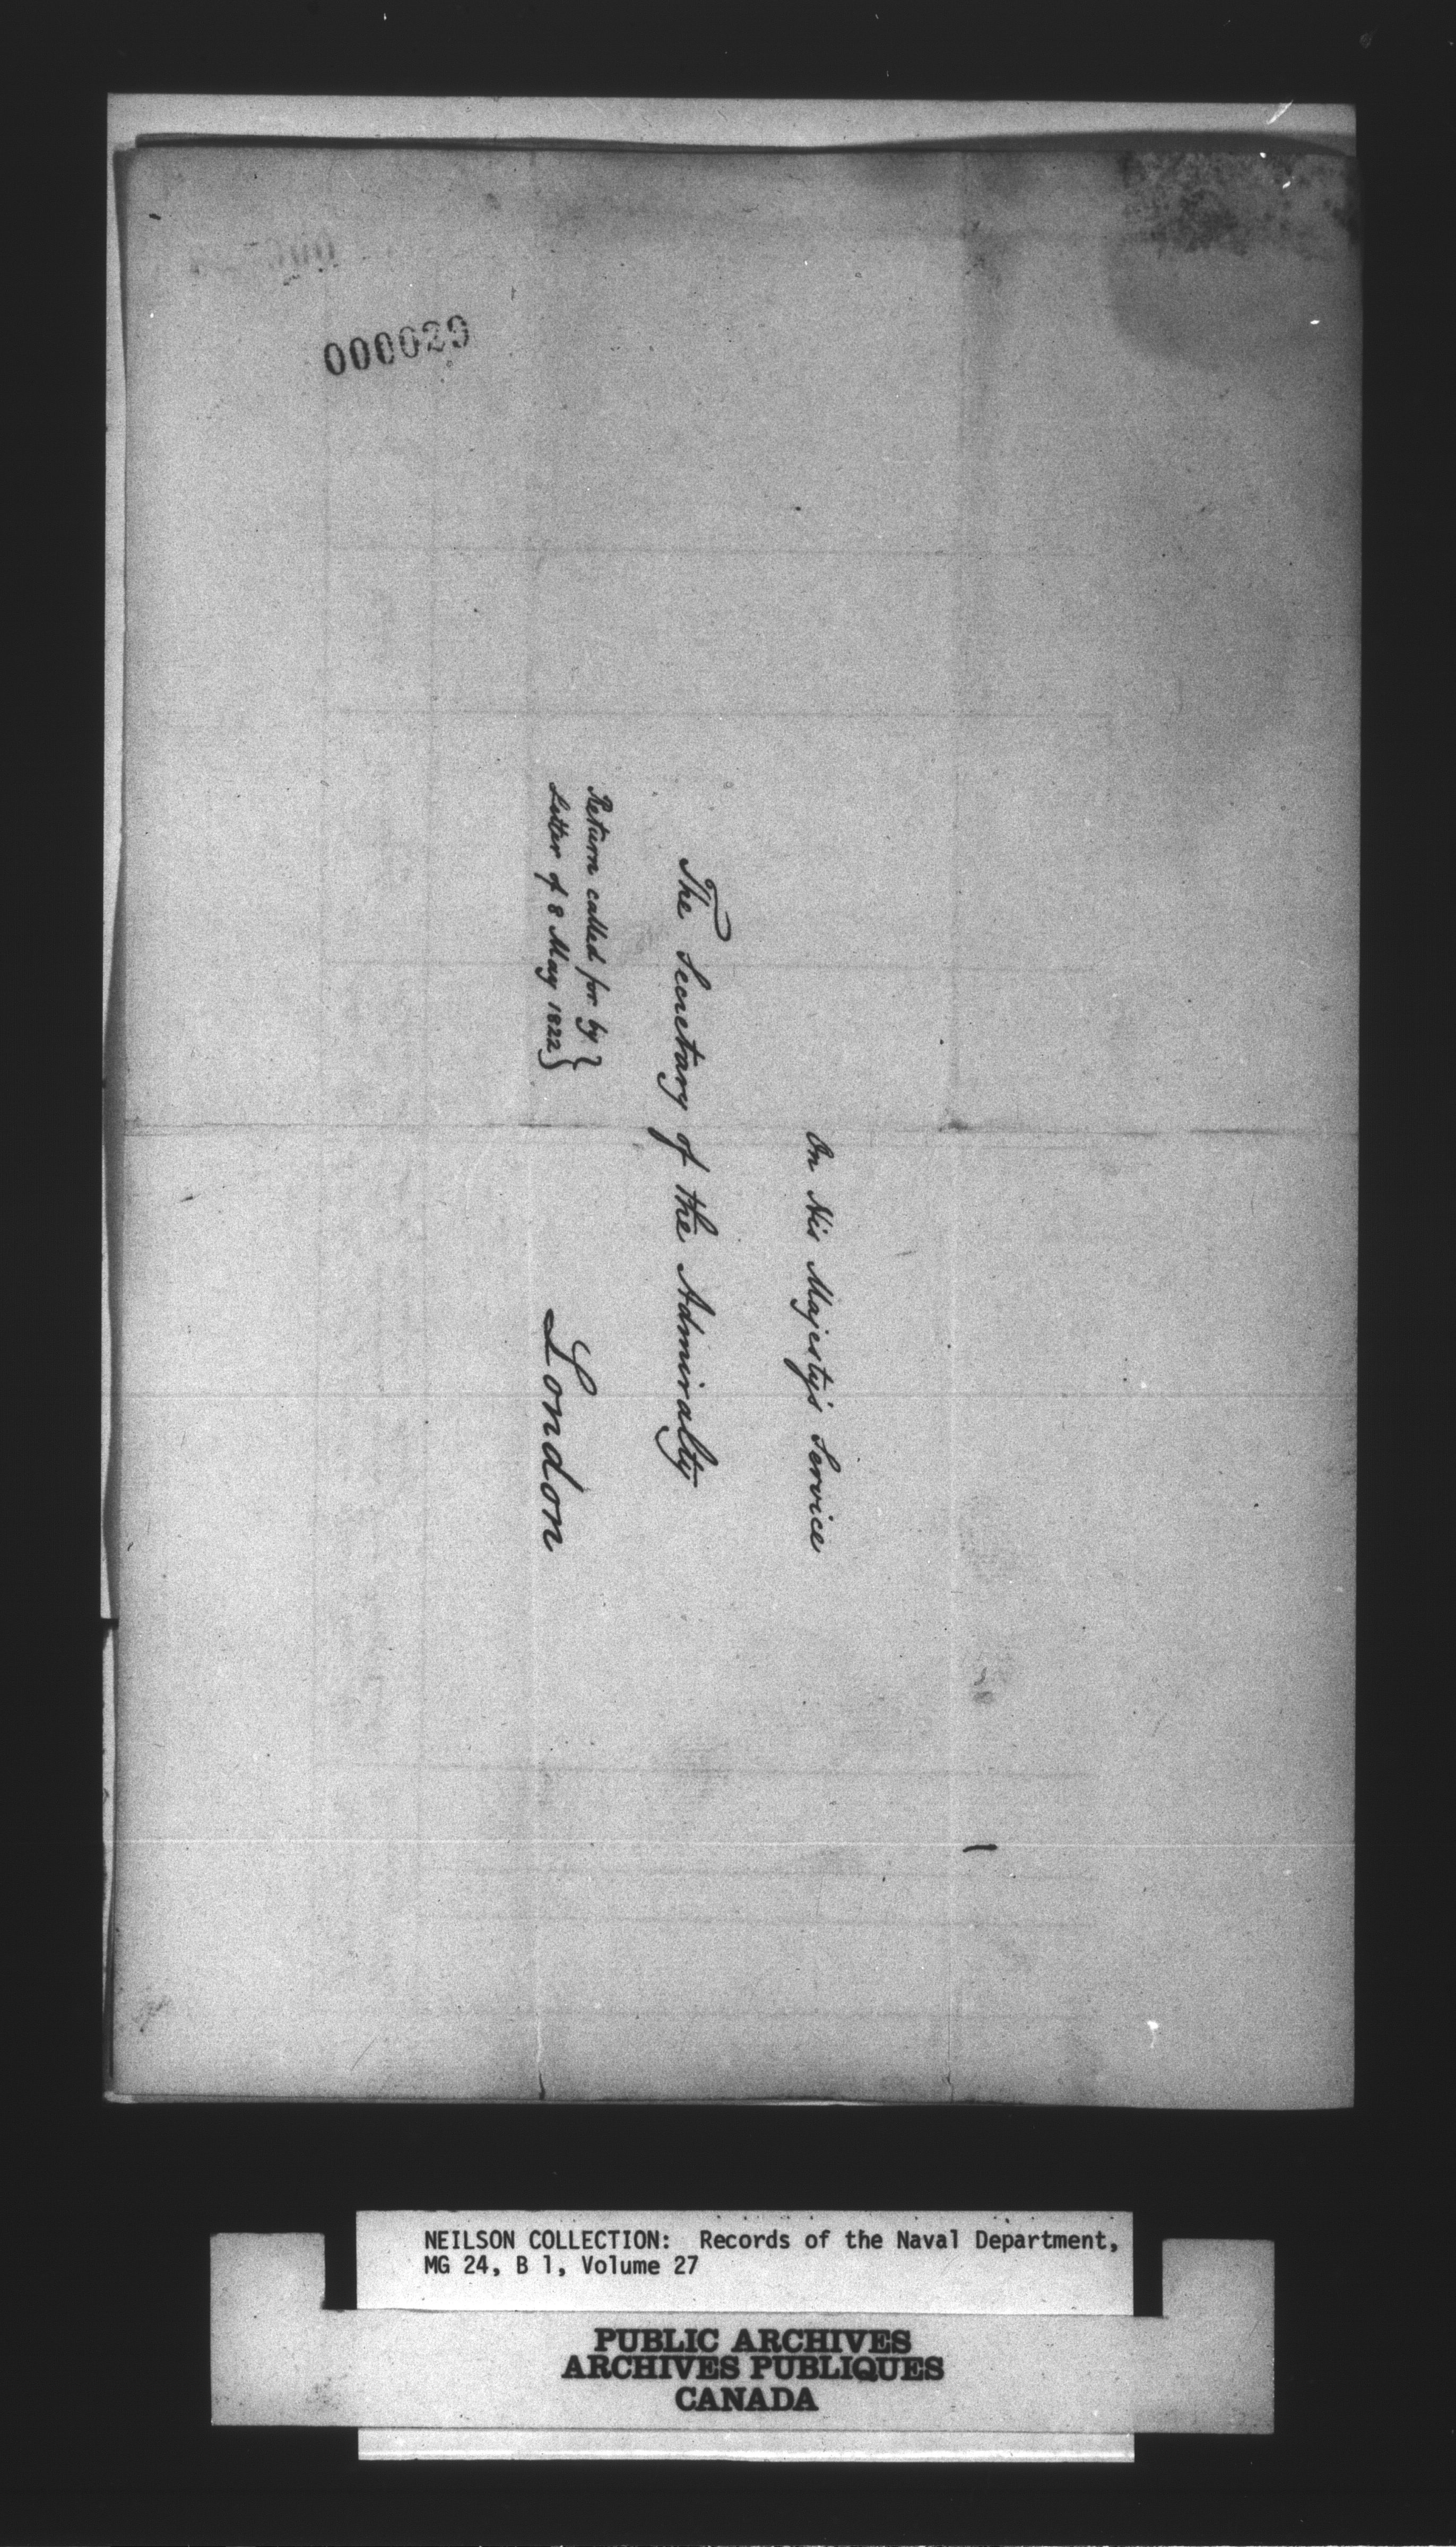 000029
On His Majesty's Service
The Secretary of the Admiralty
Return called for by }
Letter of 8 May 1822 }
London
NEILSON COLLECTION: Records of the Naval Department,
MG 24, B 1, Volume 27
PUBLIC ARCHIVES
ARCHIVES PUBLIQUES
CANADA